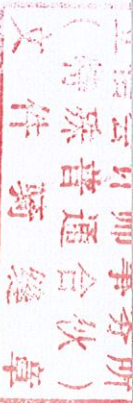 会计师事务所
(特殊普通合伙)
文件骑缝章